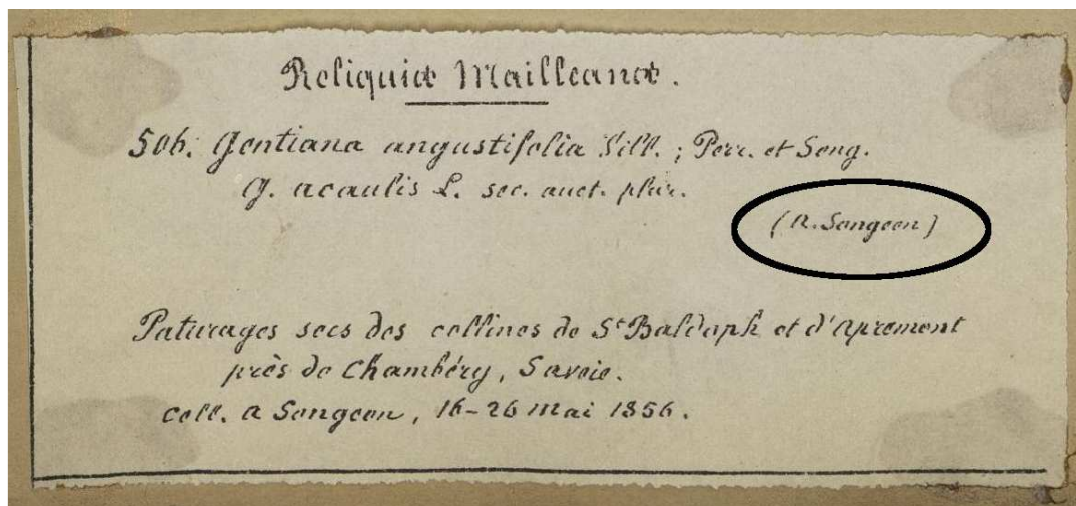 Reliquiæ Mailleanæ.
506. Gentiana angustifolia Vill. ; Perr. et Song.
G. acaulis L. sec. auct. plur.
(A. Songeon)
Paturages secs des collines de St Baldoph et d'Apremont
près de Chambéry, Savoie.
coll. A Songeon, 16-26 mai 1856.